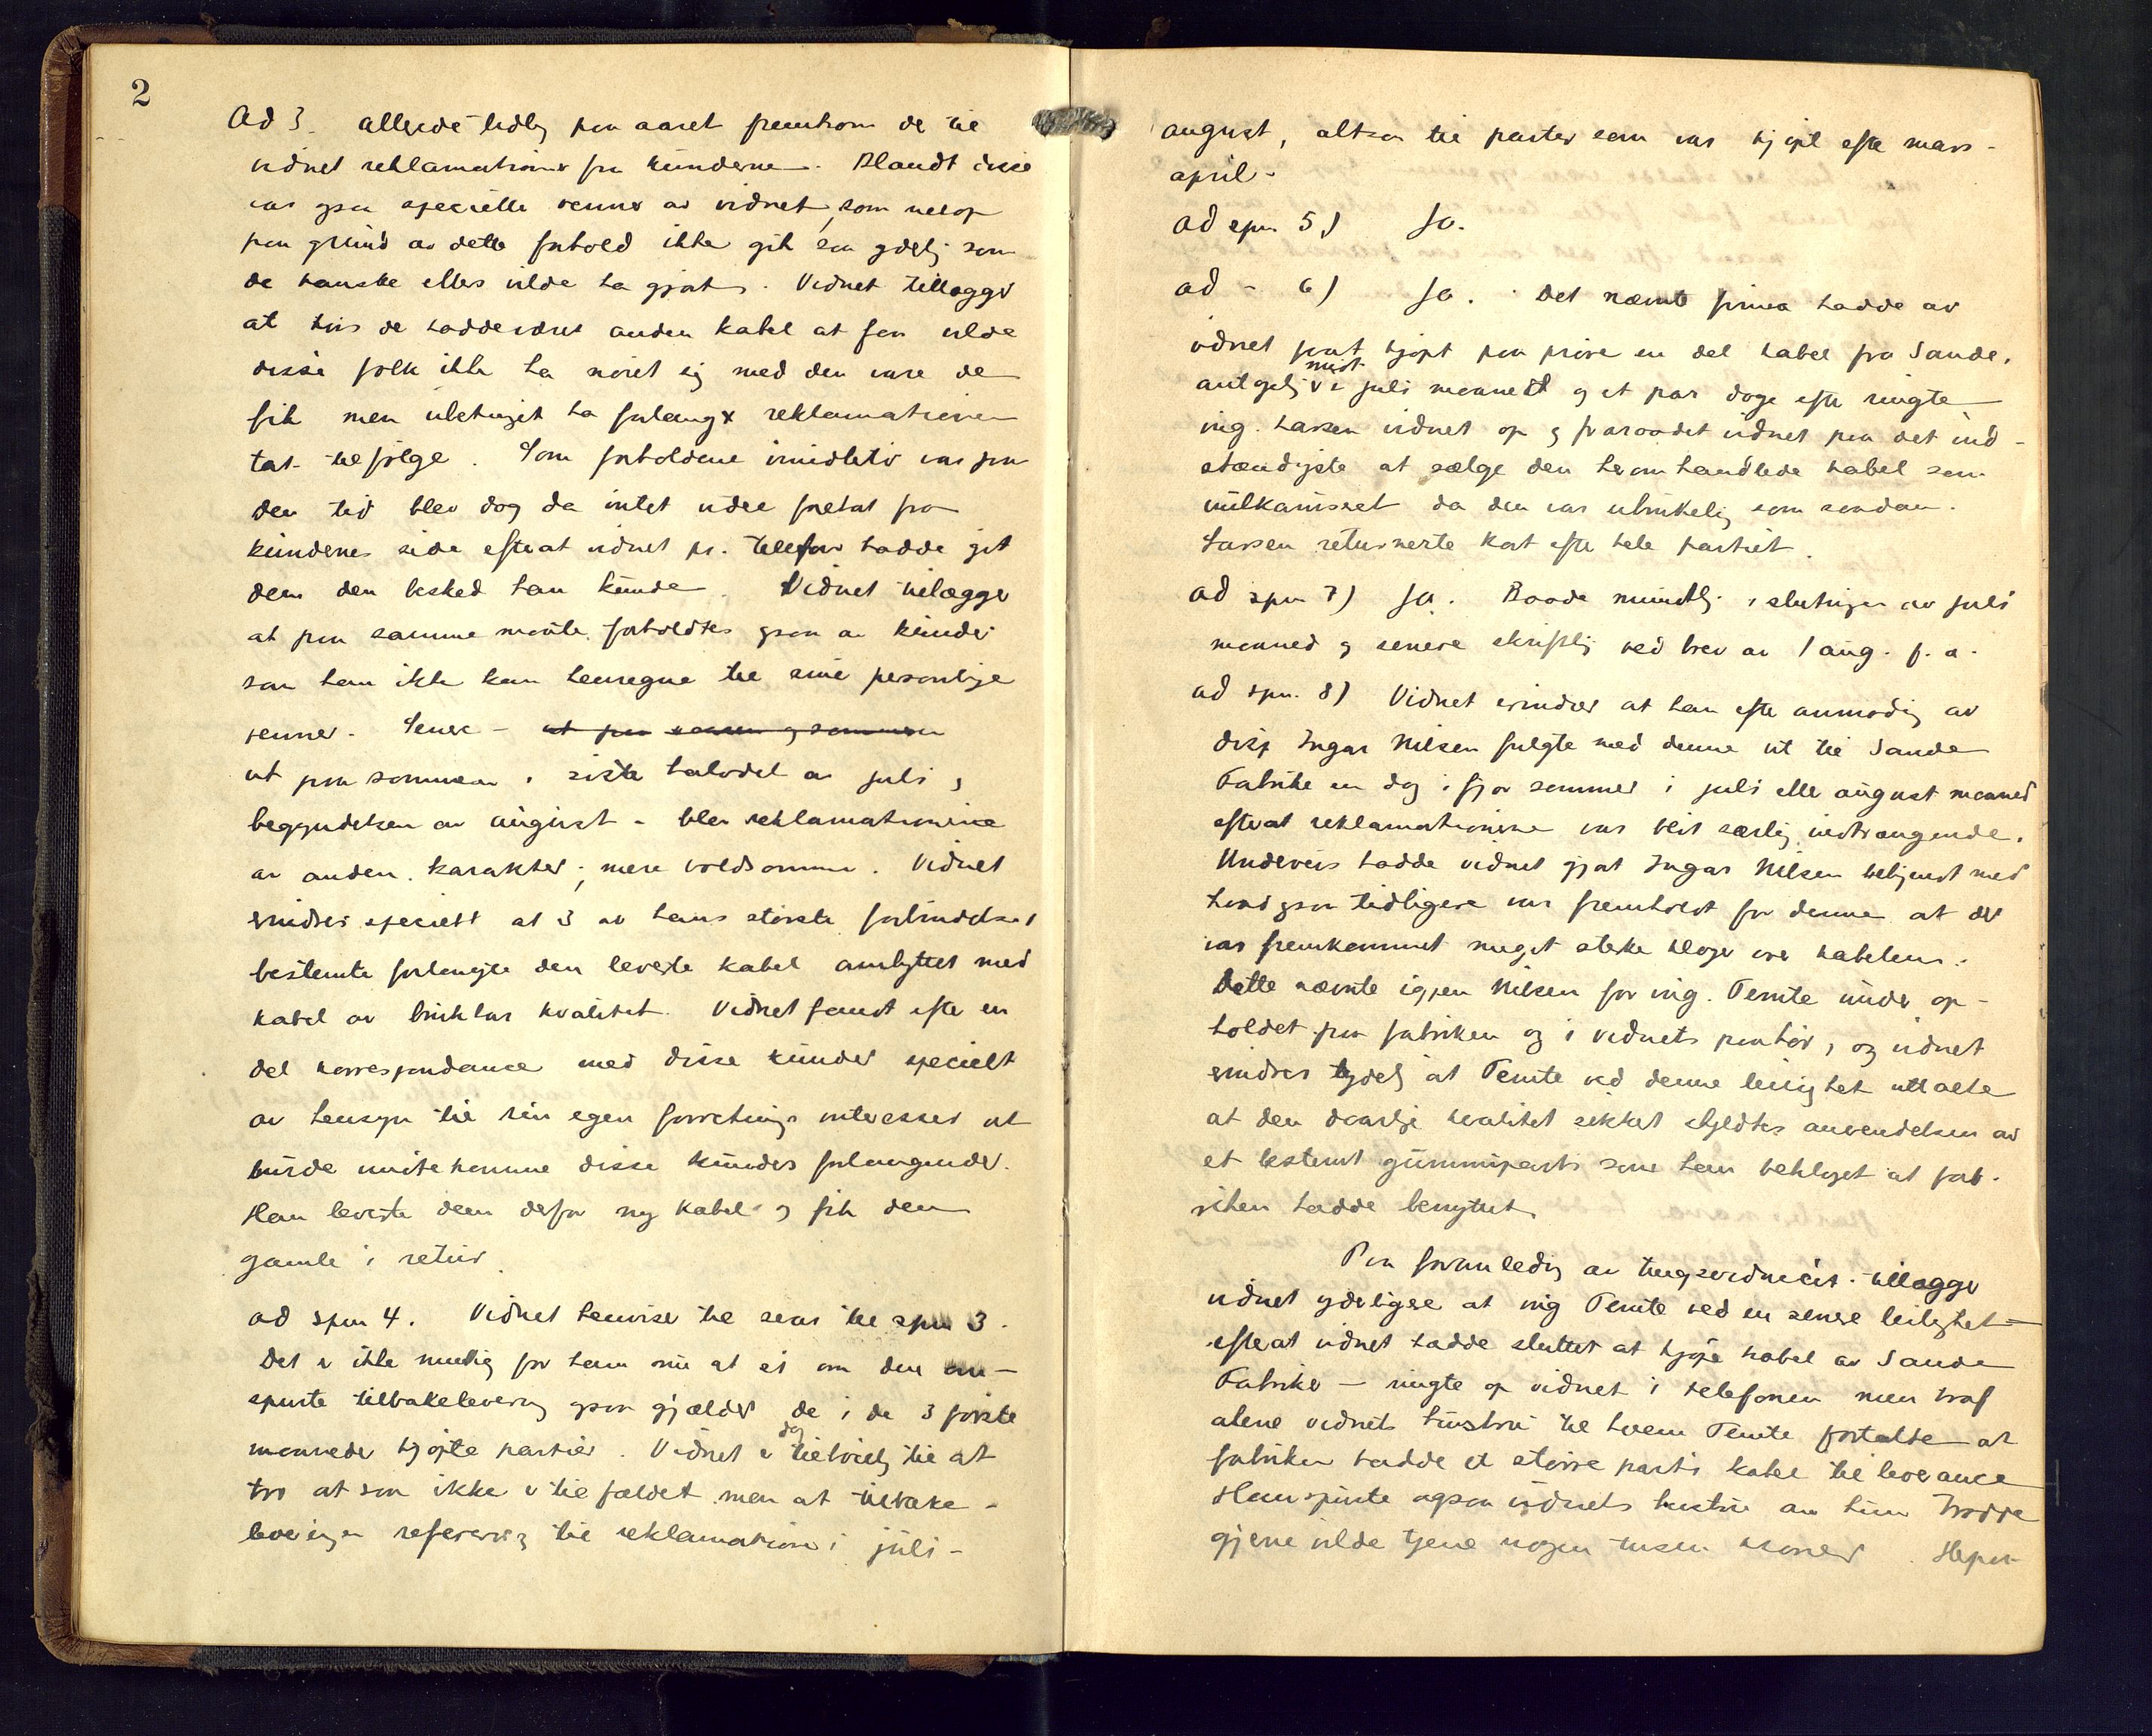 2
Ad 3. allerede tidlig paa aaret fremkom der til
vidnet reklamationer fra kunderne. Blandt disse
var ogsaa specielle venner av vidnet, som netop
paa grund av dette forhold ikke gik saa ydelig som
de kanske ellers vilde ha gjort. Vidnet tillægger
at hvis de hadde været anden kabel at faa vilde
disse folk ikke ha nøiet sig med den vare de
fik men ubetinget ha forlangt reklamationen
tat tilfølge. Som forholdene imidlertid var paa
den tid blev dog da intet videre foretat fra
kundenes side efterat vidnet pr. telefon hadde git
dem den besked han kunde. Vidnet tillægger
at paa samme maate forholdtes ogsaa av kunder
som han ikke kan henregne til sine personlige
venner. Senere - ut paa vaaren og sommeren
ut paa sommeren i siste halvdel av juli og
begyndelsen av august - blev reklamationerne
av anden karakter; mere voldsomme. Vidnet
erindrer specielt at 3 av hans største forbindelser
bestemte forlangte den leverte kabel ombyttet med
kabel av brukbar kvalitet. Vidnet fandt efter en
del korrespondance med disse kunder specielt
av hensyn til sin egen forretnings interesser at
burde imøtekomme disse kunders forlangender.
Han leverte dem derfor ny kabel og fik den
gamle i retur.
ad spm 4. Vidnet henviser til svar til spm 3.
Det er ikke mulig for ham nu at si om den om-
spurte tilbakelevering ogsaa gjælder de i de 3 første
maaneder kjøpte partier. Vidnet er dog tilbøielig til at
tro at saa ikke er tilfældet men at tilbake-
leveringen refererer sig til reklamationer i juli -
august, altsaa til partier som var kjøpt efter mars -
april.
ad spm 5) Ja.
ad - 6) Ja. Det nævnte firma hadde av
vidnet faat kjøpt paa prøve en del kabel fra Sande,
antgelig midt i juli maaned og et par dage efter ringte
ing. Lassen vidnet op og fraraadet vidnet paa det ind-
stændigste at sælge den heromhandlede kabel som
vulkaniseret da den var ubrukelig som saadan.
Lassen returnerte kort efter hele partiet.
ad spm 7) Ja. Baade mundtlig i slutningen av juli
maaned og senere skriftlig ved brev av 1 aug. f. a.
ad spm. 8) Vidnet erindrer at han efter anmodning av
disp Ingar Nilsen fulgte med denne ut til Sande
Fabrike en dag i fjor sommer i juli eller august maaned
efterat reklamationerne var blit særlig indtrængende.
Underveis hadde vidnet gjort Ingar Nilsen bekjendt med
hvad ogsaa tidligere var fremholdt for denne at der
var fremkommet meget sterke klager over kabelen.
Dette nævnte igjen Nilsen for ing. Temte under op-
holdet paa fabriken og i vidnets paahør, og vidnet
erindrer tydelig at Temte ved denne leilighet uttalte
at den daarlige kvalitet sikkert skyldtes anvendelsen av
et bestemt gummiparti som han beklaget at fab-
riken hadde benyttet.
Paa foranledning av tillægger
vidnet yderligere at ing Temte ved en senere leilighet -
efterat vidnet hadde sluttet at kjøpe kabel av Sande
Fabriker - ringte op vidnet i telefonen men traf
alene vidnets hustru til hvem Temte fortalte at
fabriken hadde et større parti kabel til leverance
Han spurte ogsaa vidnets hustru om hun trodde
gjerne vilde tjene nogen tusen kroner. Herpaa